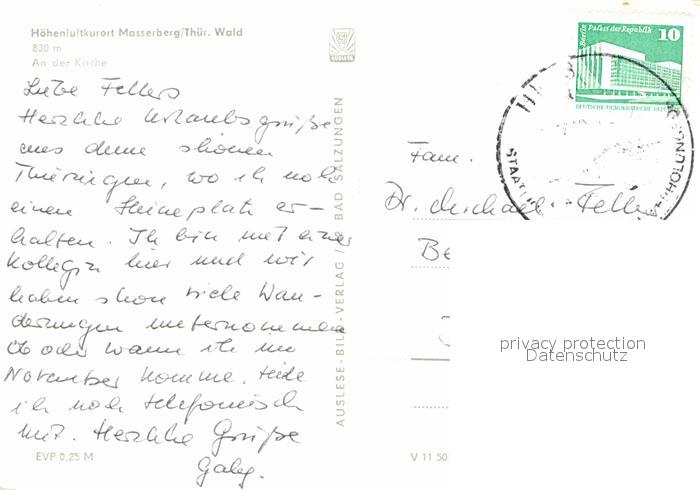 Höhenluftkurort Masserberg/Thür. Wald
830 m
An der Kirche
Liebe Fellers
Herzliche Urlaubsgrüße
aus dem schönen
Thüringen, wo ich noch
einen Ferienplatz er-
halten. Ich bin mit einer
Kollegin hier und wir
haben schon viele Wan-
derungen unternommen
Ob oder wann ich im
November komme, teile
ich noch telefonisch
mit. Herzliche Grüße
Gaby.
EVP 0,25 M
AUSLESE-BILD-VERLAG / BAD SALZUNGEN
Berlin Palast der Republik
10
DEUTSCHE DEMOKRATISCHE REP
Fam.
Dr. Michael Felle
Be
privacy protection
Datenschutz
V 11 50